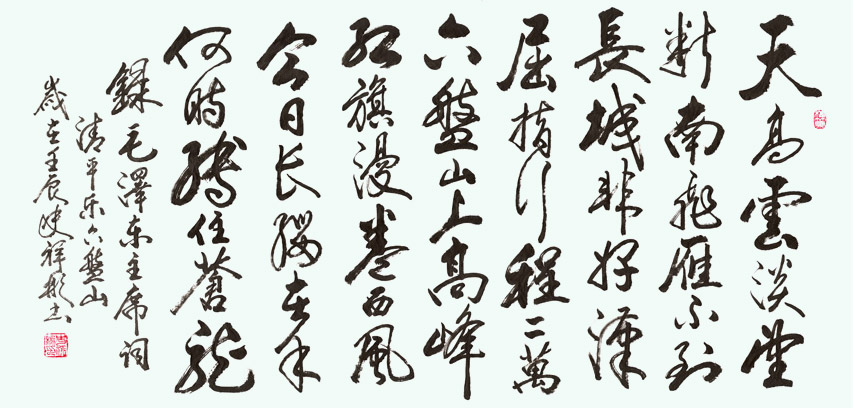 天高雲淡望
断南飛雁不到
長城非好漢
屈指行程二萬
六盤山上高峰
红旗漫卷西風
今日长缨在手
何時縛住蒼龍
録毛澤东主席词
清平乐六盤山
歲在壬辰史祥彬书